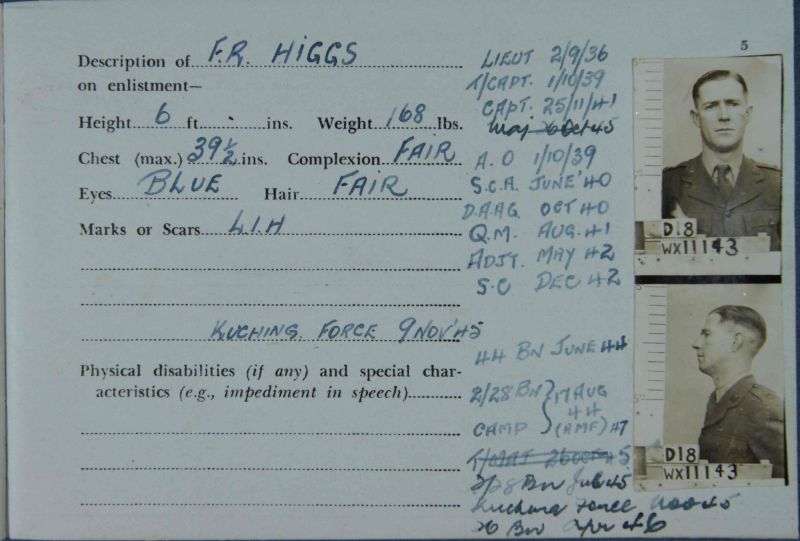 5
Description of F.R. HIGGS
on enlistment—
Height 6 ft. ins. Weight 168 lbs.
Chest (max.) 39½ ins. Complexion FAIR
Eyes BLUE Hair FAIR
Marks or Scars L.I.H
KUCHING FORCE 9 NOV'45
Physical disabilities (if any) and special char-
acteristics (e.g., impediment in speech)
LIEUT 2/9/36
T/CAPT. 1/10/39
CAPT. 25/11/41
Maj 26 Oct 45
A.O 1/10/39
S.C.A. JUNE'40
D.A.A.G. OCT 40
Q.M. AUG. 41
ADJT. MAY 42
S.C DEC 42
44 BN JUNE 44
2/28 BN } 17 AUG
44
CAMP (AMF) 47
T/MAJ 26 OCT 45
2/28 BN Jul 45
Kuching Force Nov 45
26 BN Apr 46
D18
WX11143
D18
WX11143